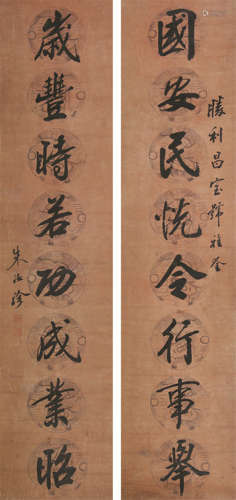 勝利昌宝號雅鑒
國安民悅令行事舉
歲豐時若功成業昭
朱汝珍